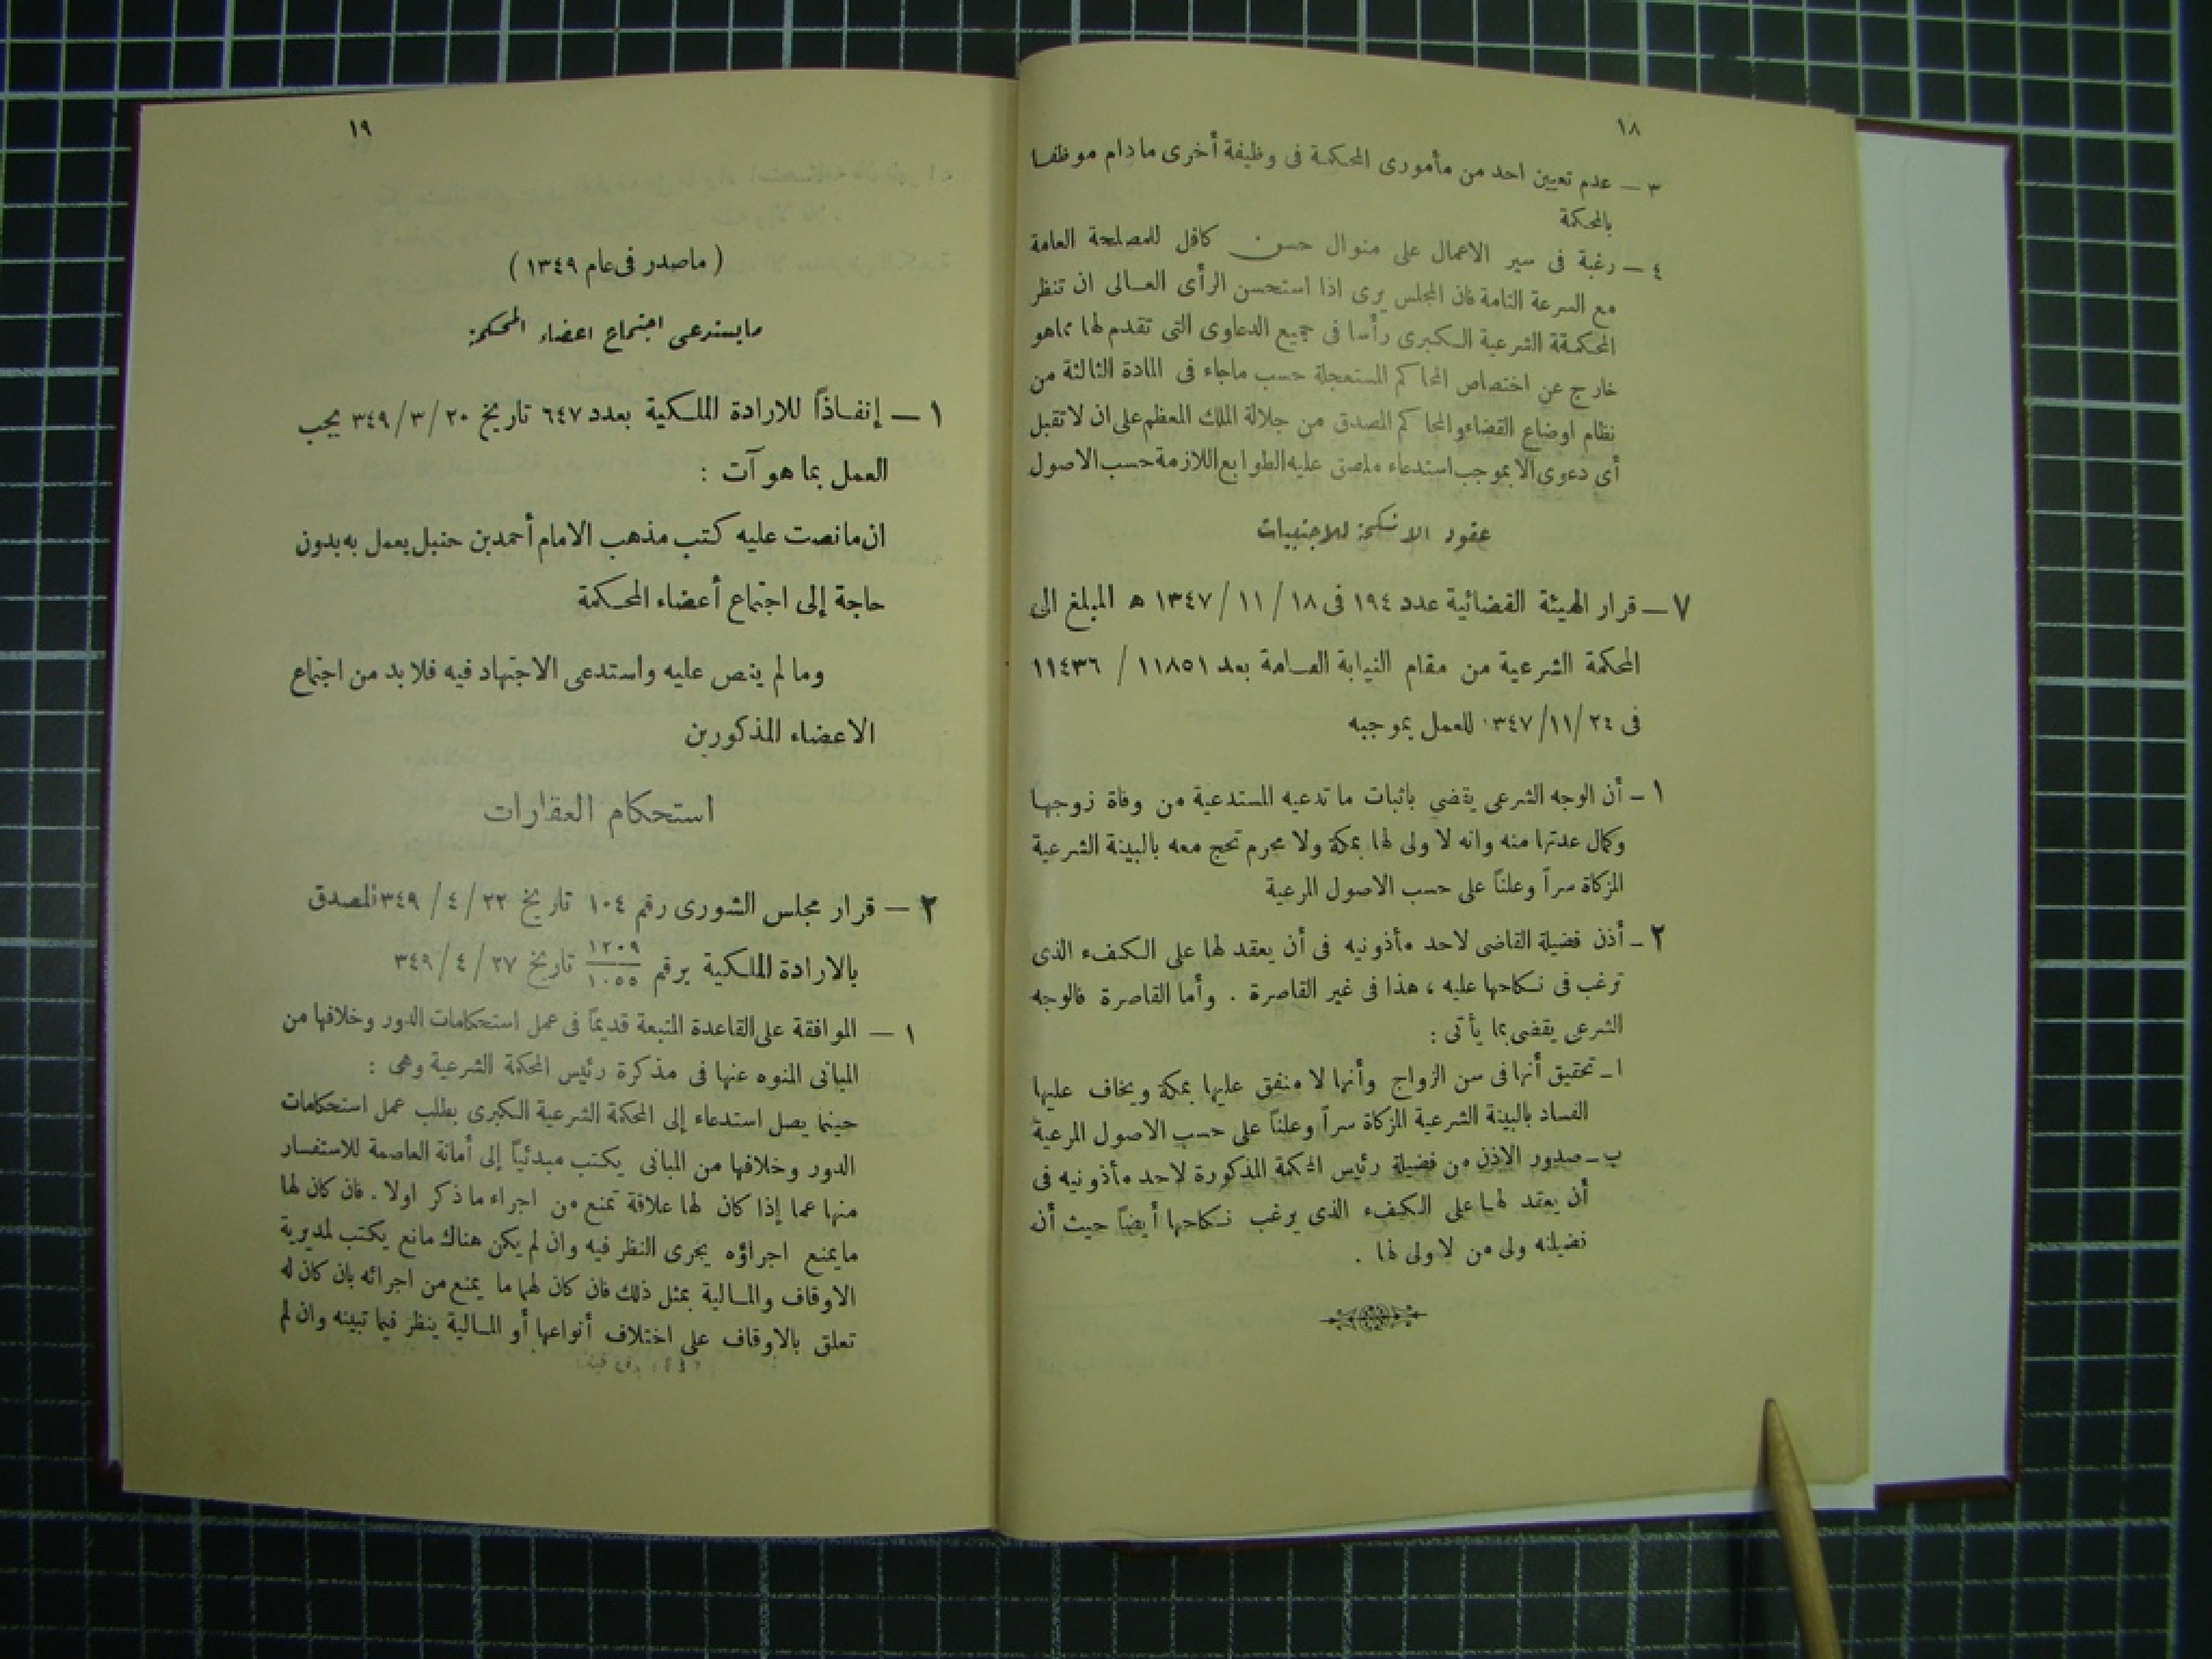 ١٨
٣ — عدم تعيين احد من مأمورى المحكمة فى وظيفة أخرى مادام موظفا
بالمحكمة
٤ — رغبة فى سير الاعمال على منوال حسن كافل للمصلحة العامة
مع السرعة التامة فان المجلس يرى اذا استحسن الرأى العالى ان تنظر
المحكمقة الشرعية الكبرى رأسا فى جميع الدعاوى التى تقدم لها مماهو
خارج عن اختصاص المحاكم المستعجلة حسب ماجاء فى المادة الثالثة من
نظام اوضاع القضاء والمحاكم المصدق من جلالة الملك المعظم على ان لا تقبل
أى دعوى الا بموجب استدعاء ملصق عليه الطوابع اللازمة حسب الاصول
عقود الانكحة للاجنبيات
٧ — قرار الهيئة القضائية عدد ١٩٤ فى ١٨ / ١١ / ١٣٤٧ ه المبلغ الى
المحكمة الشرعية من مقام النيابة العامة بعدد ١١٨٥١ / ١١٤٣٦
فى ٢٤ /١١/ ٣٤٧ للعمل بموجبه
١ - أن الوجه الشرعى يقضى باثبات ما تدعيه المستدعية من وفاة زوجها
وكمال عدتها منه وانه لا ولى لها بمكة ولا محرم تحج معه بالبينة الشرعية
المزكاة سراً وعلناً على حسب الاصول المرعية
٢ - أذن فضيلة القاضى لاحد مأذونيه فى أن يعقد لها على الكفء الذى
ترغب فى نكاحها عليه ، هذا فى غير القاصرة . وأما القاصرة فالوجه
الشرعى يقضى بما يأتى :
ا - تحقيق أنها فى سن الزواج وأنها لا منفق عليها بمكة ويخاف عليها
الفساد بالبينة الشرعية المزكاة سراً وعلناً على حسب الاصول المرعية
ب - صدور الاذن من فضيلة رئيس المحكمة المذكورة لاحد مأذونيه فى
أن يعقد لها على الكفء الذى يرغب نكاحها أيضاً حيث أن
فضيلته ولى من لا ولى لها .
١٩
( ماصدر فى عام ١٣٤٩ )
مايستدعى اجتماع اعضاء المحكمة:
١ — إنفاذاً للارادة الملكية بعدد ٦٤٧ تاريخ ٢٠ /٣/ ٣٤٩ يجب
العمل بما هو آت :
ان مانصت عليه كتب مذهب الامام أحمد بن حنبل يعمل به بدون
حاجة إلى اجتماع أعضاء المحكمة
وما لم ينص عليه واستدعى الاجتهاد فيه فلا بد من اجتماع
الاعضاء المذكورين
استحكام العقارات
٢ — قرار مجلس الشورى رقم ١٠٤ تاريخ ٢٢ / ٤ / ٣٤٩ المصدق
بالارادة الملكية برقم ١٢٠٩/١٠٥٥ تاريخ ٢٧ / ٤ / ٣٤٩
١ — الموافقة على القاعدة المتبعة قديماً فى عمل استحكامات الدور وخلافها من
المبانى المنوه عنها فى مذكرة رئيس المحكمة الشرعية وهى :
حينما يصل استدعاء إلى المحكمة الشرعية الكبرى بطلب عمل استحكامات
الدور وخلافها من المبانى يكتب مبدئياً إلى أمانة العاصمة للاستفسار
منها عما إذا كان لها علاقة تمنع من اجراء ماذكر اولا . فان كان لها
مايمنع اجراؤه يجرى النظر فيه وان لم يكن هناك مانع يكتب لمديرية
الاوقاف والمالية بمثل ذلك فان كان لهما ما يمنع من اجرائه بان كان له
تعلق بالاوقاف على اختلاف أنواعها أو المالية ينظر فيما تبينه وان لم